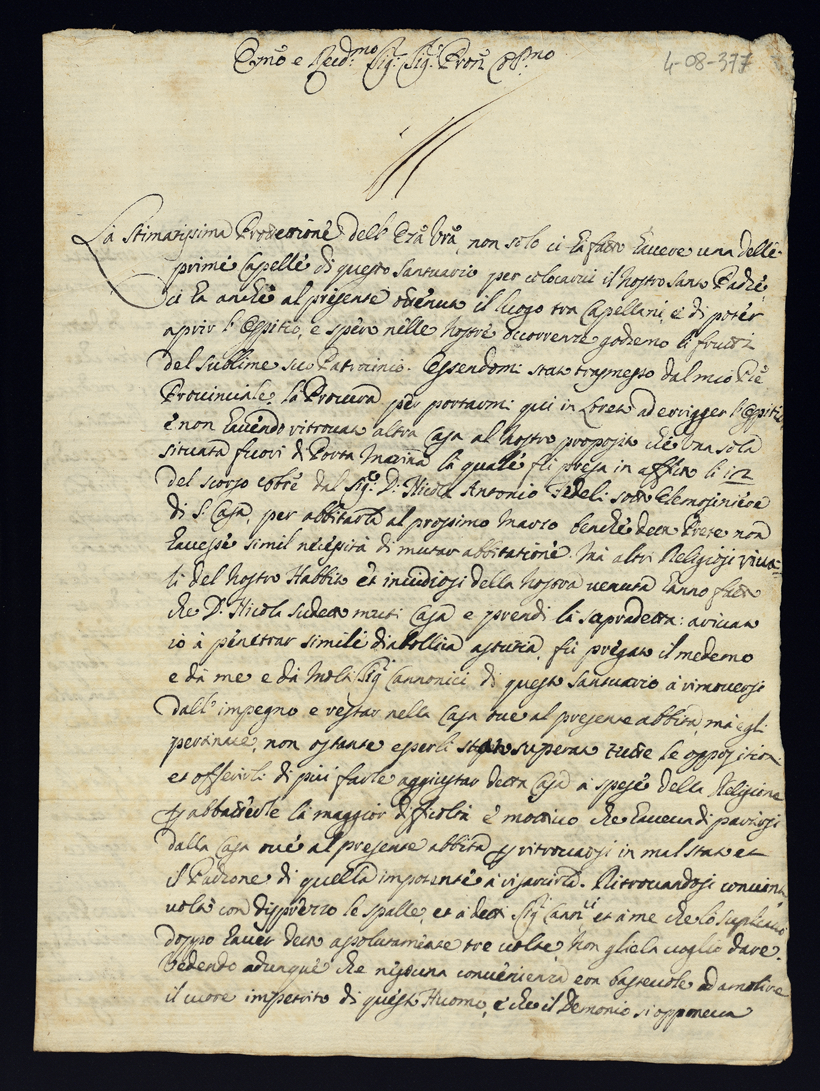 Emo e Revd.mo Sig.r Sig.r Pron Col.mo
4-08-377
La Stimatissima Protettione dell' Eza Vra, non solo ci hà fatto havere una delle
prime Capelle di questo Santuario per colocarvi il Nostro Santo Padre,
ci ha anche al presente ottenuto il luogo tra Capellani, e di poter
aprir l'Ospitio, e spero nelle Nostre occorrenze godremo li frutti
del sublime suo Patrocinio. Essendomi stato trasmesso dal mio Pre
Provinciale la Procura per portarmi qui in Loreto ad erigger l'Ospitio
e non havendo ritrovato altra Casa al Nostro proposito che una sola
situata fuori di Porta Marina la quale fù presa in affitto li
del scorso dal Sig.r D. Nicola Antonio Fedeli sotto Elemosiniere
di S. Casa, per abbitarla al prossimo Marzo benche detto Prete non
havesse simil necessità di mutar abbitatione. Mà altri Religiosi riva-
li del Nostro Habbito et invidiosi della Nostra venuta hanno fatto
che D. Nicola sudetto muti Casa e prendi la sopradetta: arivato
io à penetrar simile diabollica astutia, fù pregato il medemo
e da me e da molti Sig.ri Cannonici di questo Santuario à rimoversi
dall' impegno e restar nella Casa ove al presente abbita, mà egli
pertinace, non ostante esserli state superate tutte le oppositioni
et offerirli di più farle aggiustar detta Casa à spese della Religione
abbatterle la maggior dificoltà e mottivo che haveva di partirsi
dalla Casa ove al presente abbita ritrovarsi in mal stato et
il Padrone di quella impotente à risarcirla. Ritrovandosi convinto
voltò con disprezzo le spalle, et à detti Sig.ri Cann.ci et à me che lo suplicavo
doppo haver detto assolutamente tre volte Non gliela voglio dare.
Vedendo adunque che nissuna convenienza era bastevole ad amolire
il cuore impetrito di quest' Huomo, e che il Demonio si opponeva